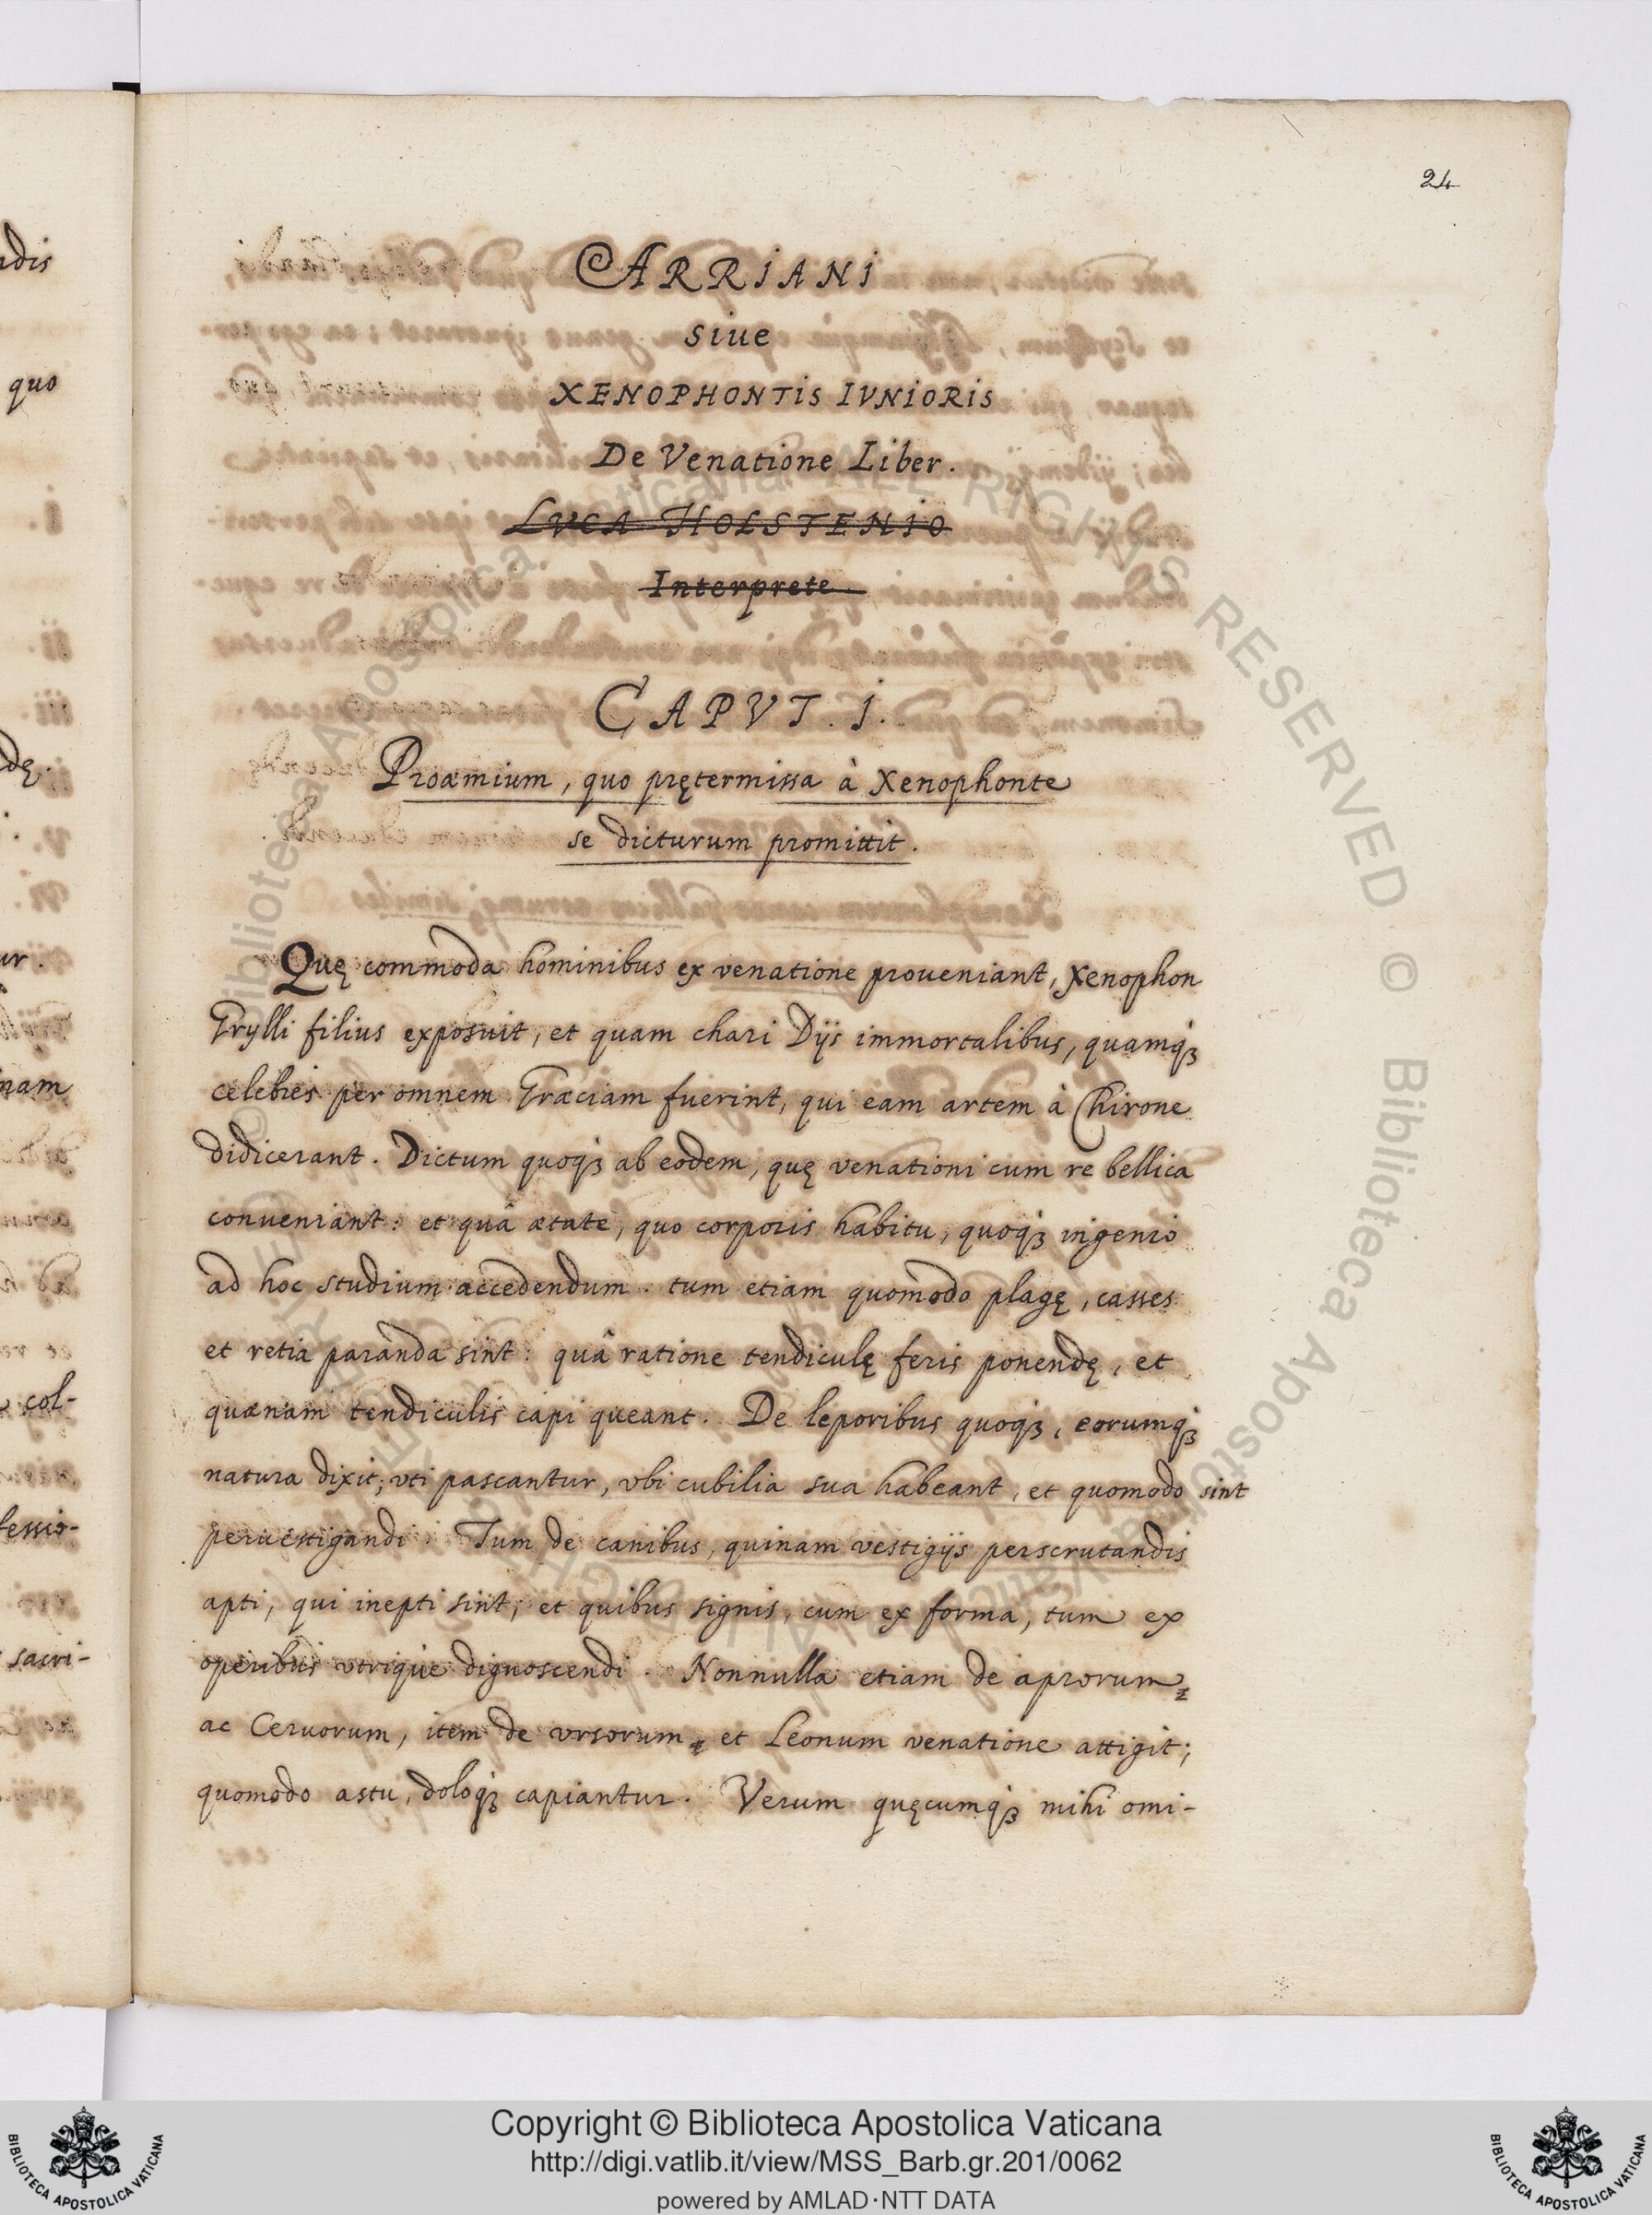 24
ARRIANI
siue
XENOPHONTIS IVNIORIS
De Venatione Liber.
LVCA HOLSTENIO
Interprete
CAPVT. I.
Proæmium, quo prętermissa à Xenophonte
se dicturum promittit.
Quę commoda hominibus ex venatione proueniant, Xenophon
Grylli filius exposuit, et quam chari Dijs immortalibus, quamq́ꝫ
celebres per omnem Græciam fuerint, qui eam artem à Chirone
didicerant. Dictum quoq́ꝫ ab eodem, quę venationi cum re bellica
conueniant: et quâ ætate, quo corporis habitu, quoq́ꝫ ingenio
ad hoc studium accedendum. tum etiam quomodo plagę, casses
et retia paranda sint: quâ ratione tendiculę feris ponendę, et
quænam tendiculis capi queant. De leporibus quoq́ꝫ, eorumq́ꝫ
natura dixit; vti pascantur, vbi cubilia sua habeant, et quomodo sint
peruestigandi. Tum de canibus, quinam vestigijs perscrutandis
apti, qui inepti sint; et quibus signis, cum ex forma, tum ex
operibus vtrique dignoscendi. Nonnulla etiam de aprorum
ac Ceruorum, item de vrsorum et Leonum venatione attigit;
quomodo astu, doloq́ꝫ capiantur. Verum quęcumq́ꝫ mihi omi-
ndis
quo
dę.
ur.
nam
col-
fessio-
sacri-
© Biblioteca Apostolica Vaticana ALL RIGHTS RESERVED © Biblioteca Apostolica Vaticana ALL RIGHTS RESERVED
Copyright © Biblioteca Apostolica Vaticana
http://digi.vatlib.it/view/MSS_Barb.gr.201/0062
powered by AMLAD·NTT DATA
BIBLIOTECA APOSTOLICA VATICANA
BIBLIOTECA APOSTOLICA VATICANA